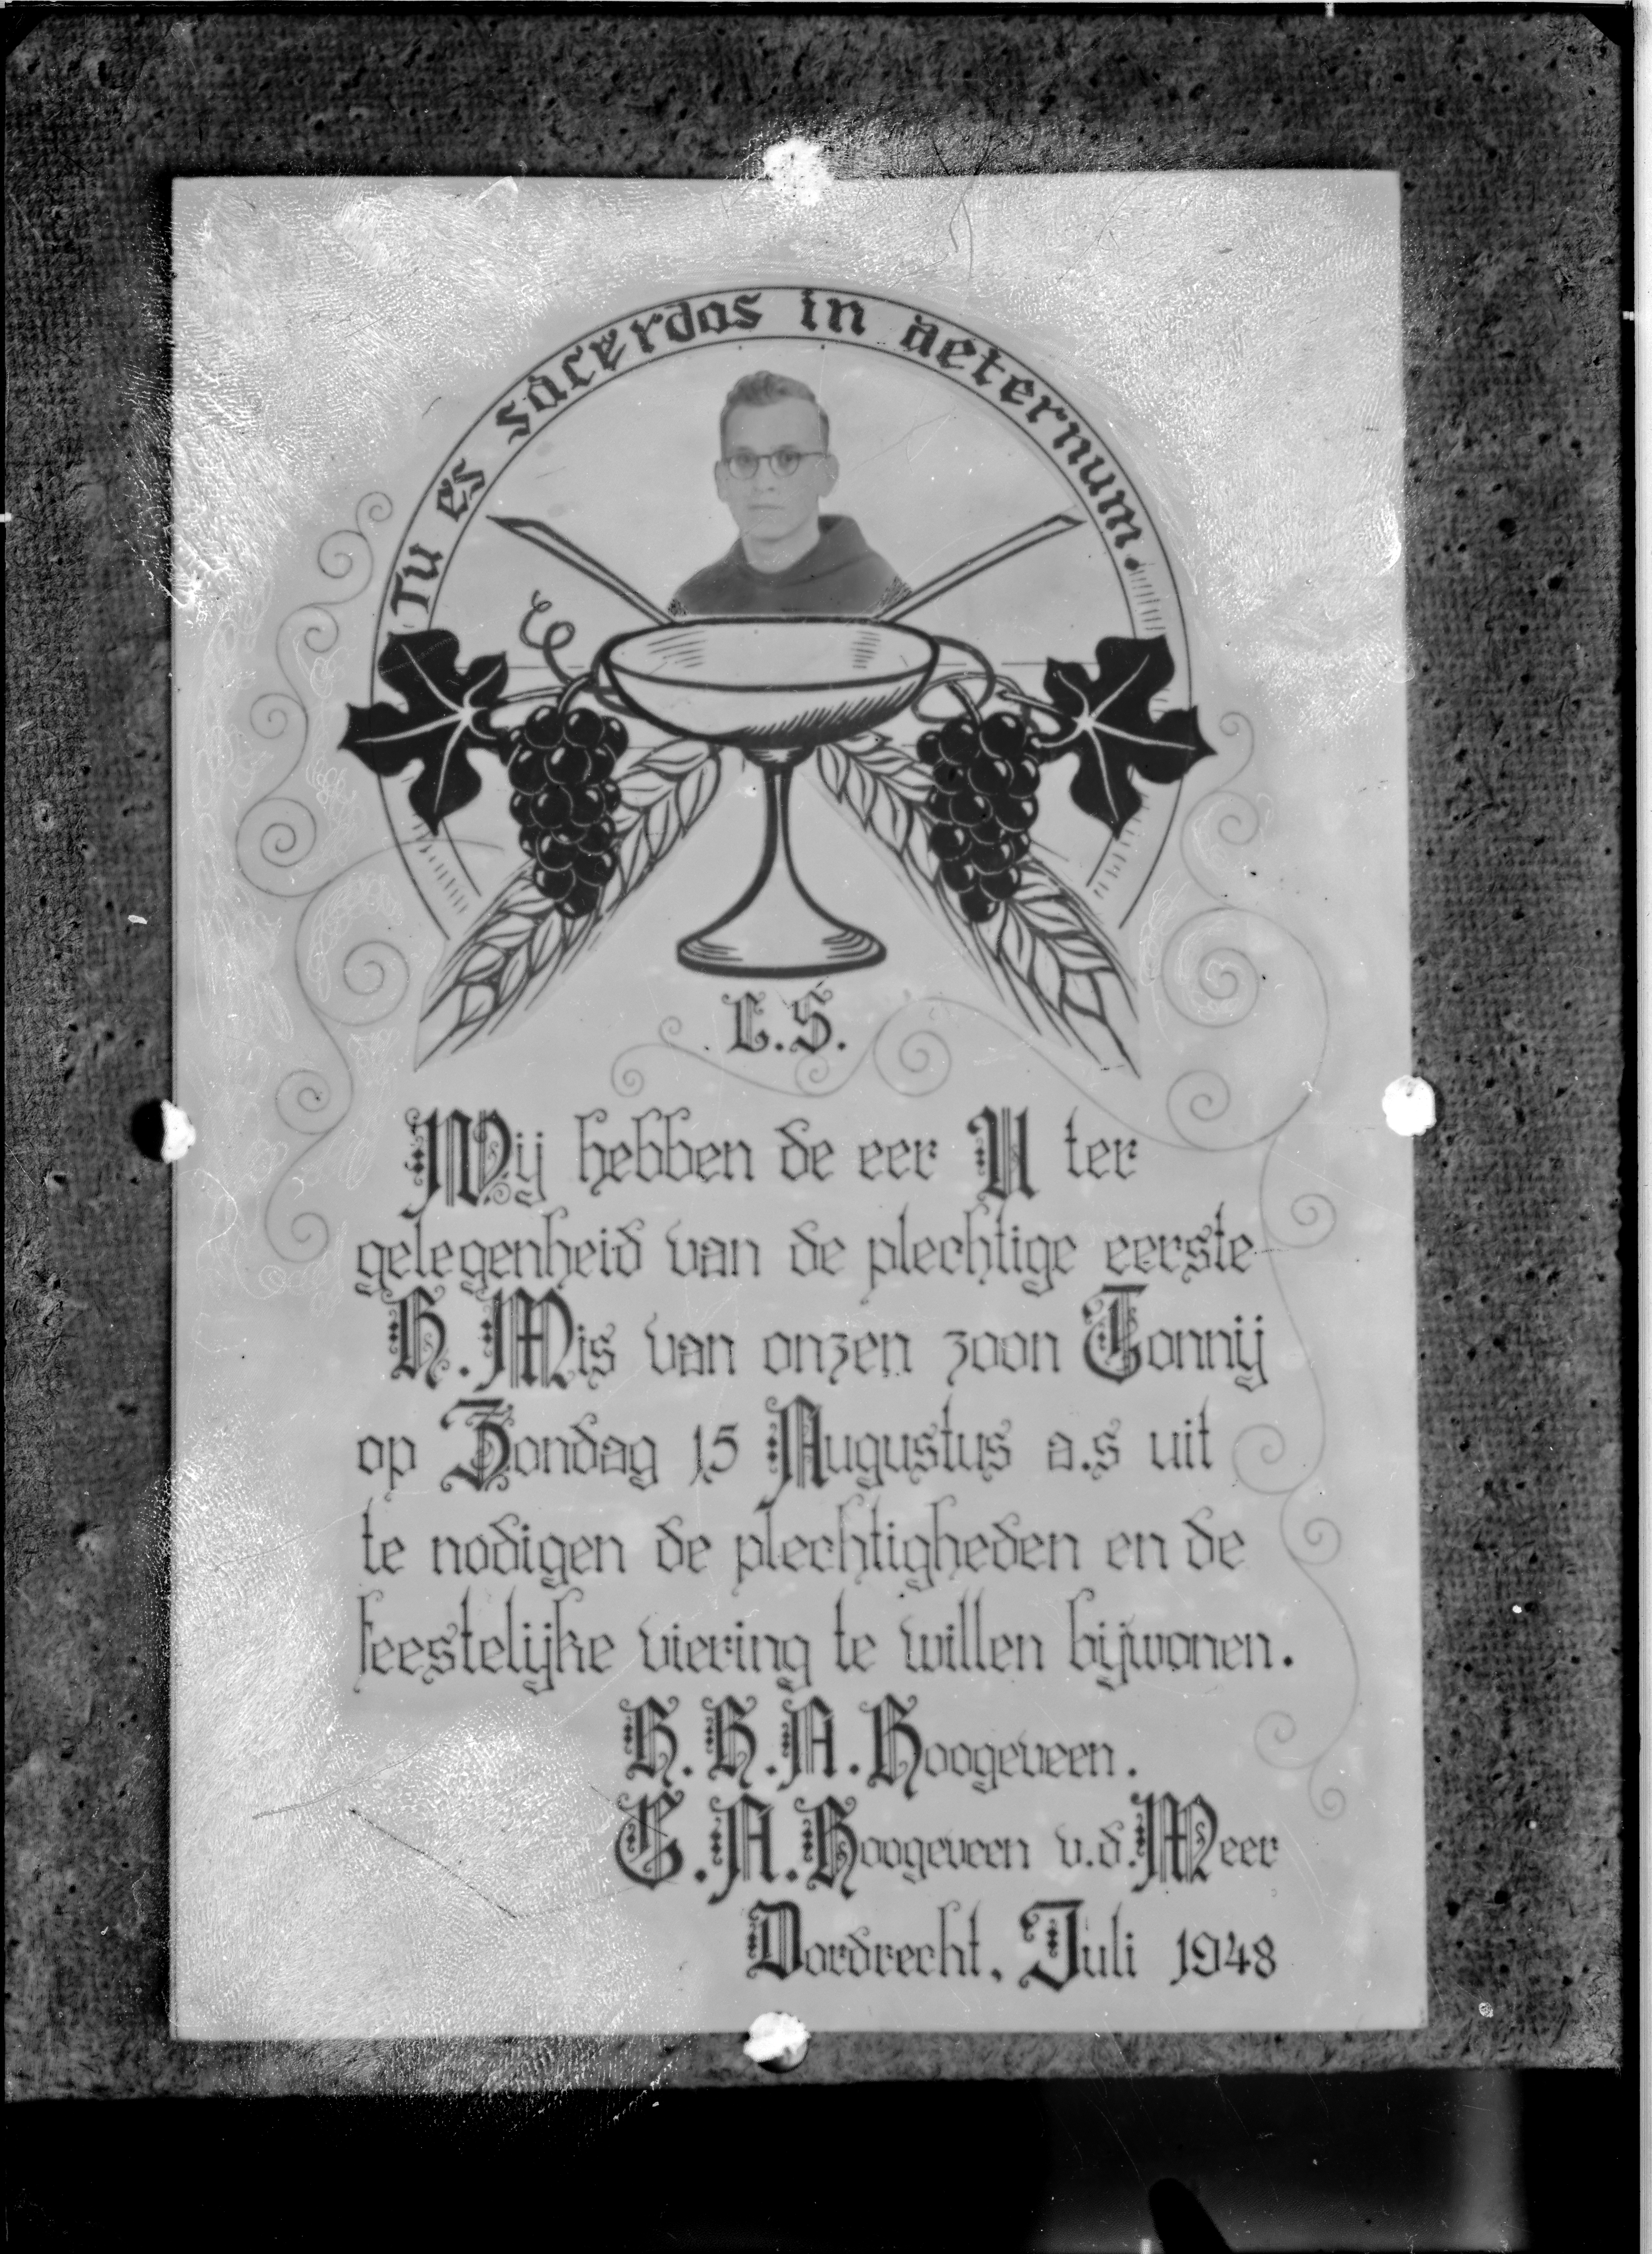 Tu es sacerdos in aeternum.
L.S.
Wij hebben de eer U ter
gelegenheid van de plechtige eerste
H. Mis van onzen zoon Tonnij
op Zondag 15 Augustus a.s uit
te nodigen de plechtigheden en de
feestelijke viering te willen bijwonen.
H. H. A. Hoogeveen.
C. A. Hoogeveen v.d. Meer
Dordrecht, Juli 1948